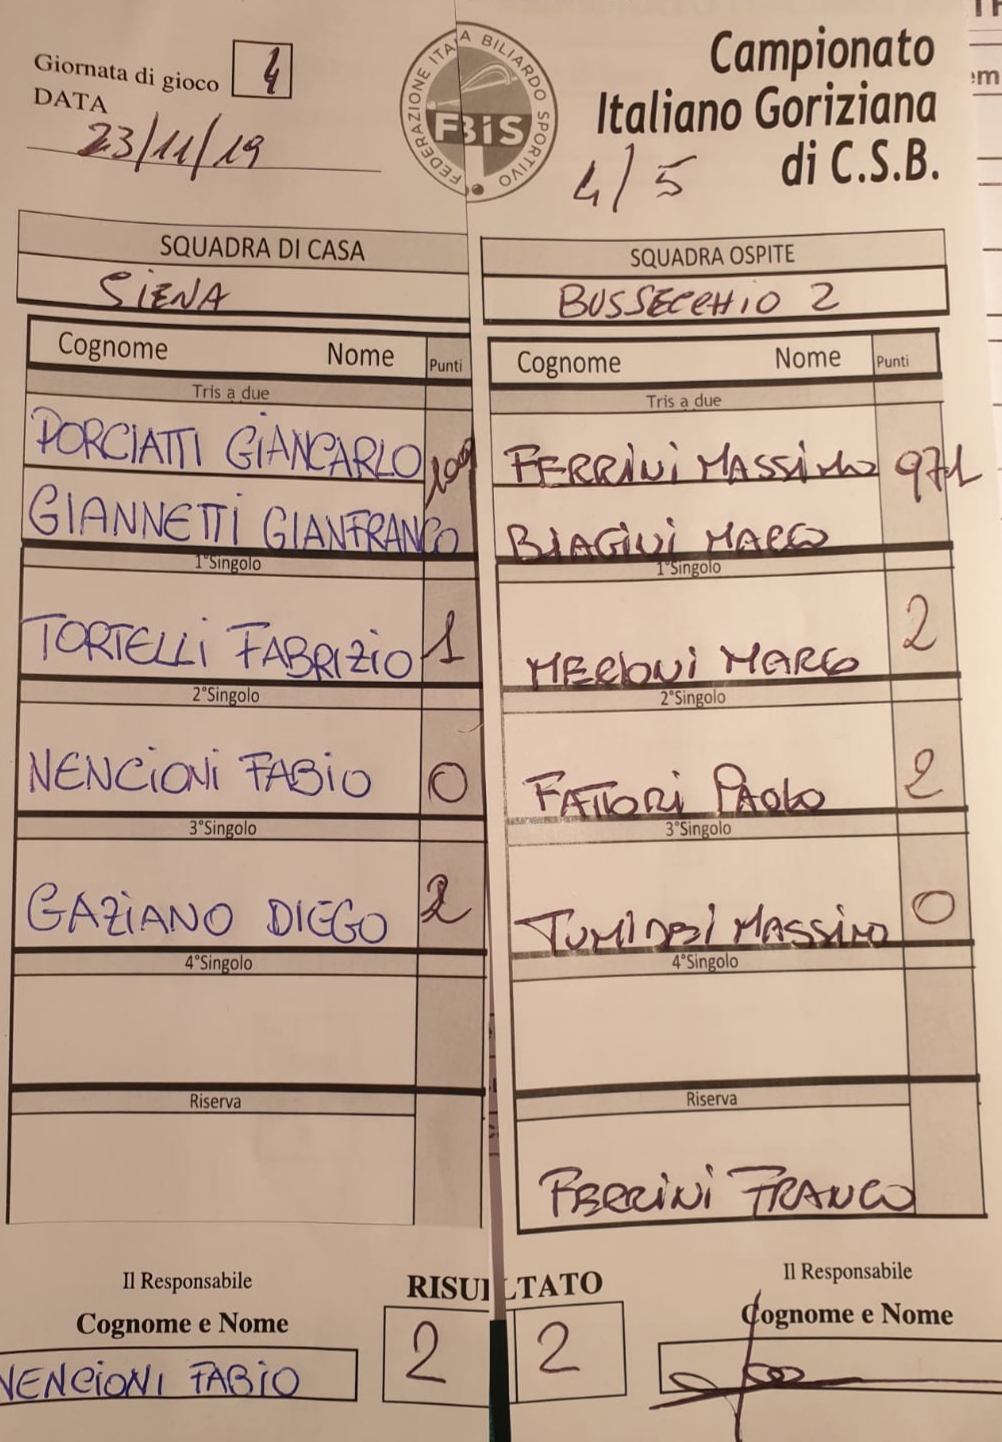 Giornata di gioco 4
DATA
23/11/19
FEDERAZIONE ITALIANA BILIARDO SPORTIVO
FBIS
Campionato
Italiano Goriziana
di C.S.B.
4/5
SQUADRA DI CASA
SIENA
Cognome Nome Punti
Tris a due
PORCIATTI GIANCARLO
GIANNETTI GIANFRANCO
1°Singolo
TORTELLI FABRIZIO 1
2°Singolo
NENCIONI FABIO 0
3°Singolo
GAZIANO DIEGO 2
4°Singolo
Riserva
SQUADRA OSPITE
BUSSECCHIO 2
Cognome Nome Punti
Tris a due
FERRINI MASSIMO 971
BIAGINI MARCO
1°Singolo
MERIONI MARCO 2
2°Singolo
FATTORI PAOLO 2
3°Singolo
MASSIMO 0
4°Singolo
Riserva
FERRINI FRANCO
Il Responsabile
Cognome e Nome
NENCIONI FABIO
RISULTATO
2 2
Il Responsabile
Cognome e Nome